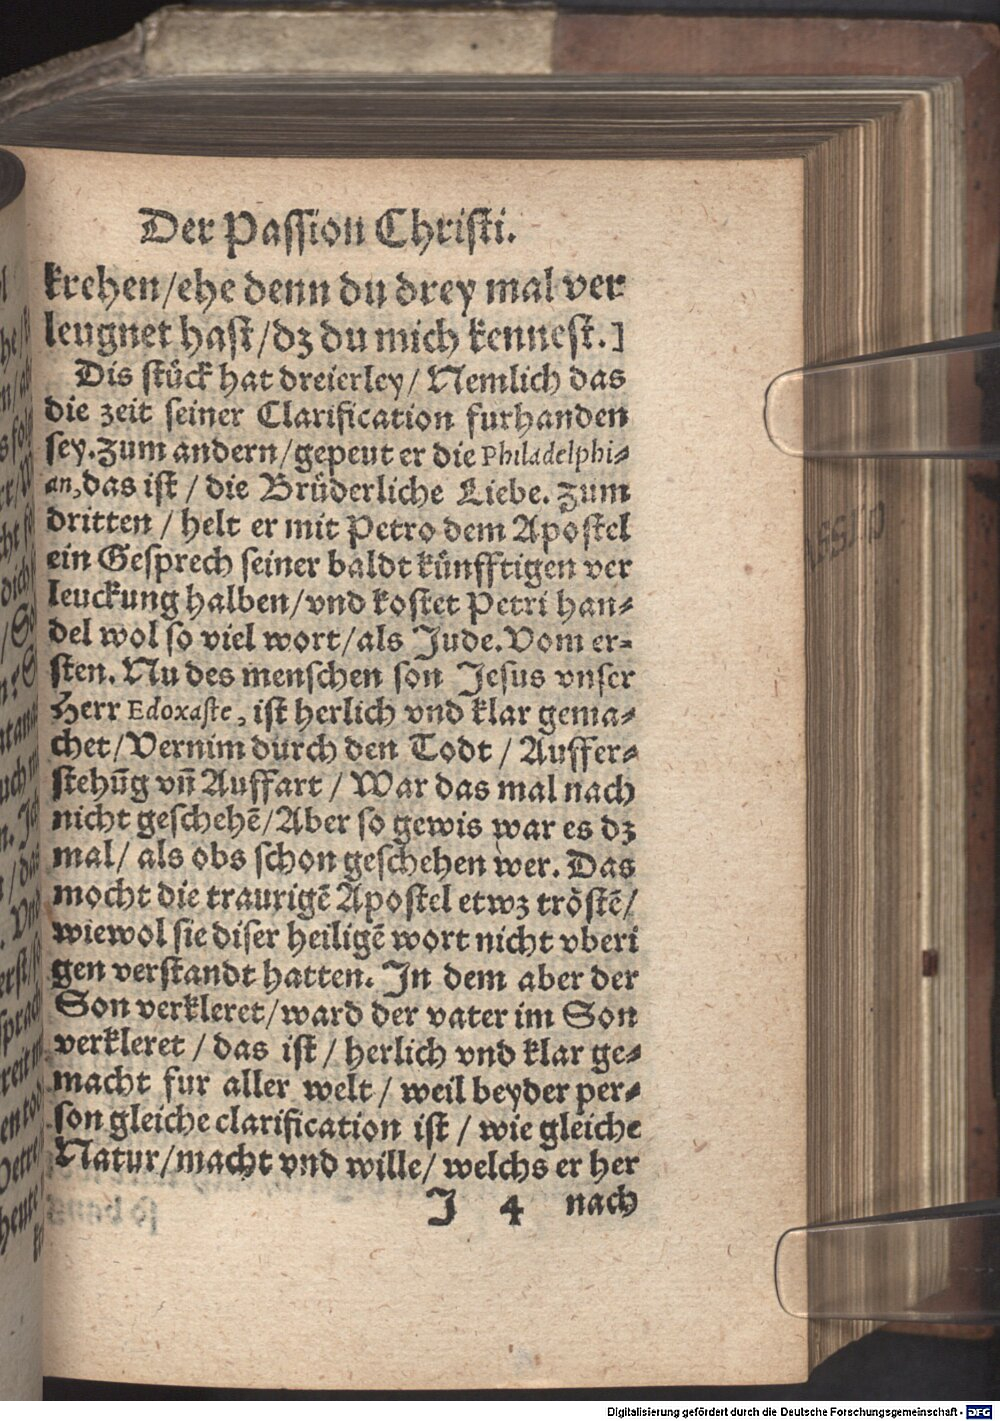 Der Passion Christi.
krehen/ehe denn du drey mal ver
leugnet hast/dz du mich kennest.]
Dis stück hat dreierley/ Nemlich das
die zeit seiner Clarification furhanden
sey. Zum andern/gepeut er die Philadelphi-
an, das ist / die Brüderliche Liebe. Zum
dritten / helt er mit Petro dem Apostel
ein Gesprech seiner baldt künfftigen ver
leuckung halben/vnd kostet Petri han-
del wol so viel wort/als Jude. Vom er-
sten. Nu des menschen son Jesus vnser
Herr Edoxaste, ist herlich vnd klar gema-
chet/Vernim durch den Todt / Auffer-
stehūg vn̄ Auffart / War das mal nach
nicht geschehē/Aber so gewis war es dz
mal/ als obs schon geschehen wer. Das
mocht die traurigē Apostel etwz tröstē/
wiewol sie diser heiligē wort nicht vberi
gen verstandt hatten. In dem aber der
Son verkleret/ward der vater im Son
verkleret / das ist / herlich vnd klar ge-
macht fur aller welt / weil beyder per-
son gleiche clarification ist / wie gleiche
Natur/macht vnd wille/ welchs er her
J 4 nach
Digitalisierung gefördert durch die Deutsche Forschungsgemeinschaft - DFG